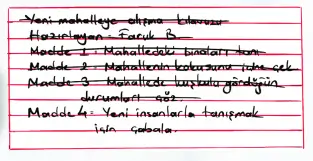 Yeni mahalleye alışma kılavuzu
Hazırlayan = Faruk B
Madde 1 = Mahalledeki binaları tanı
Madde 2 = Mahallenin kokusunu içine çek
Madde 3 = Mahallede kuşkulu gördüğün
durumları çöz
Madde 4 = Yeni insanlarla tanışmak
için çabala.